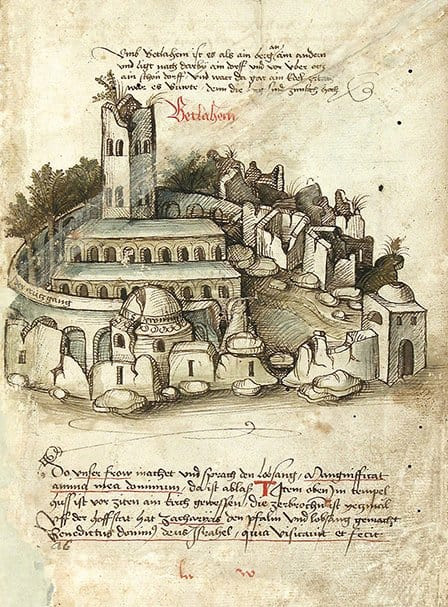 Umb Betlahem ist es als ain berg an am andern
und ligt nach darby ain dorff und vor uber och
ain schon dorff und waer da gar ain Edel
waer es buwte denn die berg sind zimlich hoch
Betlahem
Do unser frow machet und sprach den lobsang Mangnifficat
anima mea dominum, da ist ablas Item oben Im tempel
huss ist vor ziten ain kirch gewessen, die zerbrochen ist yezmal
Uff der hoffstat hat Zacharias den psalm und lobsang gemacht
Benedictus domin deus Israhel, quia visitavit et fecit